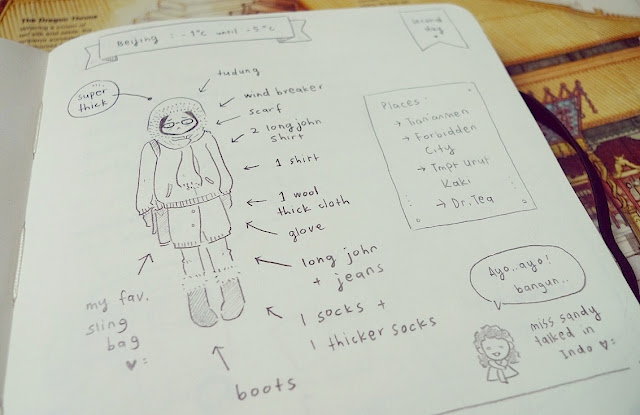 The Dragon Throne
Beijing : -1°c until -5°c
second
day
super
thick
tudung
wind breaker
scarf
2 longjohn
shirt
1 shirt
1 wool
thick cloth
glove
long john
+ jeans
1 socks +
1 thicker socks
boots
my fav.
sling
bag
♥:
Places :
→ Tian'anmen
→ Forbidden
City
→ Tmpt Urut
Kaki
→ Dr.Tea
Ayo..ayo!
bangun..
miss sandy
talked in
Indo ♥: